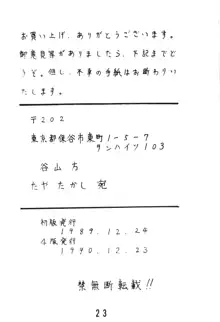 お買い上げ、ありがとうございます。
御意見等がありましたら、下記までどう
ぞ。但し、不幸の手紙はお断わりい
たします。
〒202
東京都保谷市東町1-5-7
サンハイツ103
谷山方
たやたかし 宛
初版発行
1989.12.24
4版発行
1990.12.23
禁無断転載!!
23